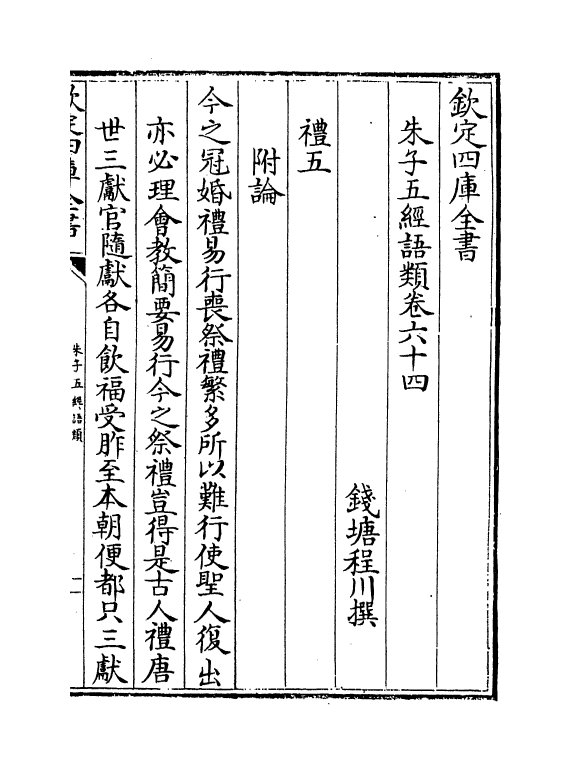 欽定四庫全書
朱子五經語類卷六十四
錢塘程川撰
禮五
附論
今之冠婚禮易行喪祭禮繁多所以難行使聖人復出
亦必理會教簡要易行今之祭禮豈得是古人禮唐
世三獻官隨獻各自飲福受胙至本朝便都只三獻
欽定四庫全書
朱子五經語類
二